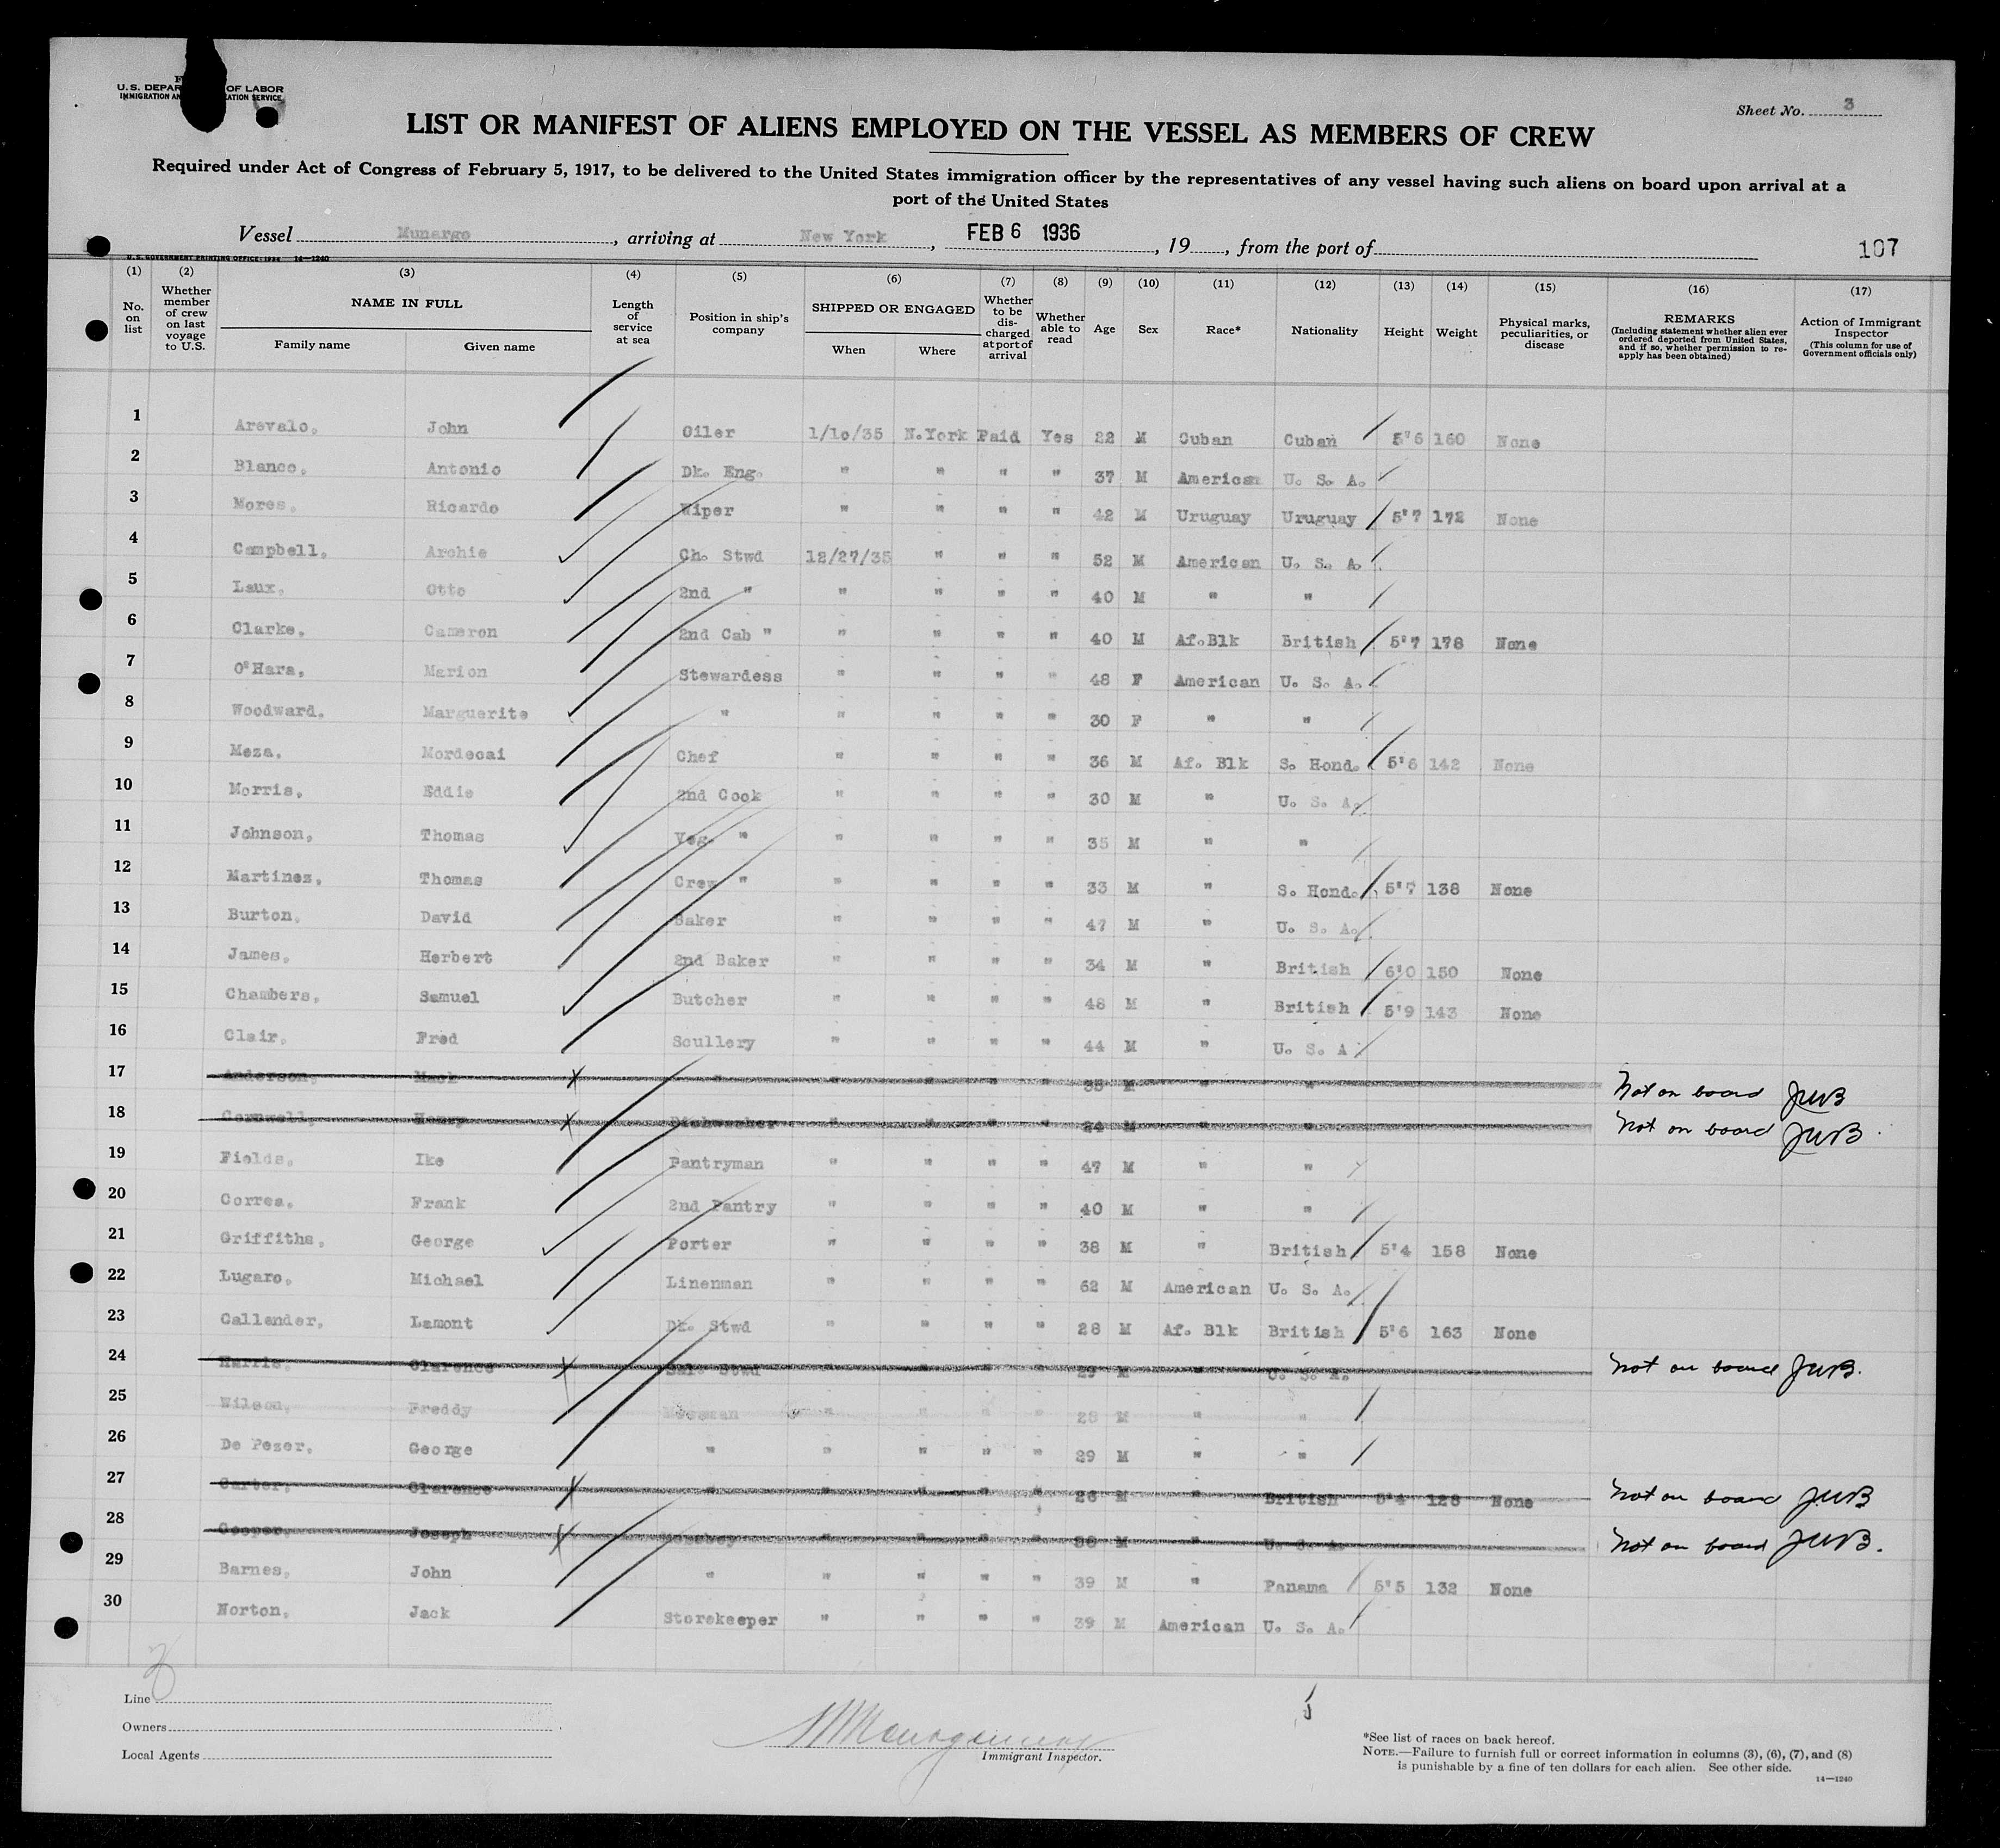 U.S. DEPAR OF LABOR
IMMIGRATION AN ATION SERVICE
Sheet No. 3
LIST OR MANIFEST OF ALIENS EMPLOYED ON THE VESSEL AS MEMBERS OF CREW
Required under Act of Congress of February 5, 1917, to be delivered to the United States immigration officer by the representatives of any vessel having such aliens on board upon arrival at a
port of the United States
Vessel Munargo, arriving at New York, FEB 6 1936, 19, from the port of 107
U.S. GOVERNMENT PRINTING OFFICE: 1934 14—1240
(1) (2) (3) (4) (5) (6) (7) (8) (9) (10) (11) (12) (13) (14) (15) (16) (17)
No. on list Whether member of crew on last voyage to U.S. NAME IN FULL Family name Given name Length of service at sea Position in ship's company SHIPPED OR ENGAGED When Where Whether to be discharged at port of arrival Whether able to read Age Sex Race* Nationality Height Weight Physical marks, peculiarities, or disease REMARKS (Including statement whether alien ever ordered deported from United States, and if so, whether permission to re-apply has been obtained) Action of Immigrant Inspector (This column for use of Government officials only)
1 Arevalo, John Oiler 1/10/35 N.York Paid Yes 22 M Cuban Cuban 5'6 160 None
2 Blanco, Antonio Dk. Eng. " " " " 37 M American U. S. A.
3 Mores, Ricardo Wiper " " " " 42 M Uruguay Uruguay 5'7 172 None
4 Campbell, Archie Ch. Stwd 12/27/35 " " " 52 M American U. S. A.
5 Laux, Otto 2nd " " " " " 40 M " "
6 Clarke, Cameron 2nd Cab " " " " " 40 M Af.Blk British 5'7 178 None
7 O'Hara, Marion Stewardess " " " " 48 F American U. S. A.
8 Woodward, Marguerite " " " " " 30 F " "
9 Meza, Mordecai Chef " " " " 36 M Af. Blk S. Hond. 5'6 142 None
10 Morris, Eddie 2nd Cook " " " " 30 M " U. S. A.
11 Johnson, Thomas Veg. " " " " " 35 M " "
12 Martinez, Thomas Crew " " " " " 33 M " S. Hond. 5'7 138 None
13 Burton, David Baker " " " " 47 M " U. S. A.
14 James, Herbert 2nd Baker " " " " 34 M " British 6'0 150 None
15 Chambers, Samuel Butcher " " " " 48 M " British 5'9 143 None
16 Clair, Fred Scullery " " " " 44 M " U. S. A
17 Anderson, Mack " " " " " 35 M " " Not on board JWB
18 Cornwell, Henry Dishwasher " " " " 24 M " " Not on board JWB.
19 Fields, Ike Pantryman " " " " 47 M " "
20 Correa, Frank 2nd Pantry " " " " 40 M " "
21 Griffiths, George Porter " " " " 38 M " British 5'4 158 None
22 Lugaro, Michael Linenman " " " " 62 M American U. S. A.
23 Callender, Lamont Dk. Stwd " " " " 28 M Af. Blk British 5'6 163 None
24 Harris, Clarence Sal. Stwd " " " " 29 M " U. S. A. Not on board JWB.
25 Wilson, Freddy Messman " " " " 28 M " "
26 De Pezer, George " " " " " 29 M " "
27 Carter, Clarence " " " " " 26 M " British 5'4 128 None Not on board JWB
28 Cooper, Joseph " " " " M " U. S. A. Not on board JWB.
29 Barnes, John " " " " " 39 M " Panama 5'5 132 None
30 Norton, Jack Storekeeper " " " " 39 M American U. S. A.
Line
Owners
Local Agents
Immigrant Inspector.
*See list of races on back hereof.
NOTE.—Failure to furnish full or correct information in columns (3), (6), (7), and (8)
is punishable by a fine of ten dollars for each alien. See other side.
14—1240